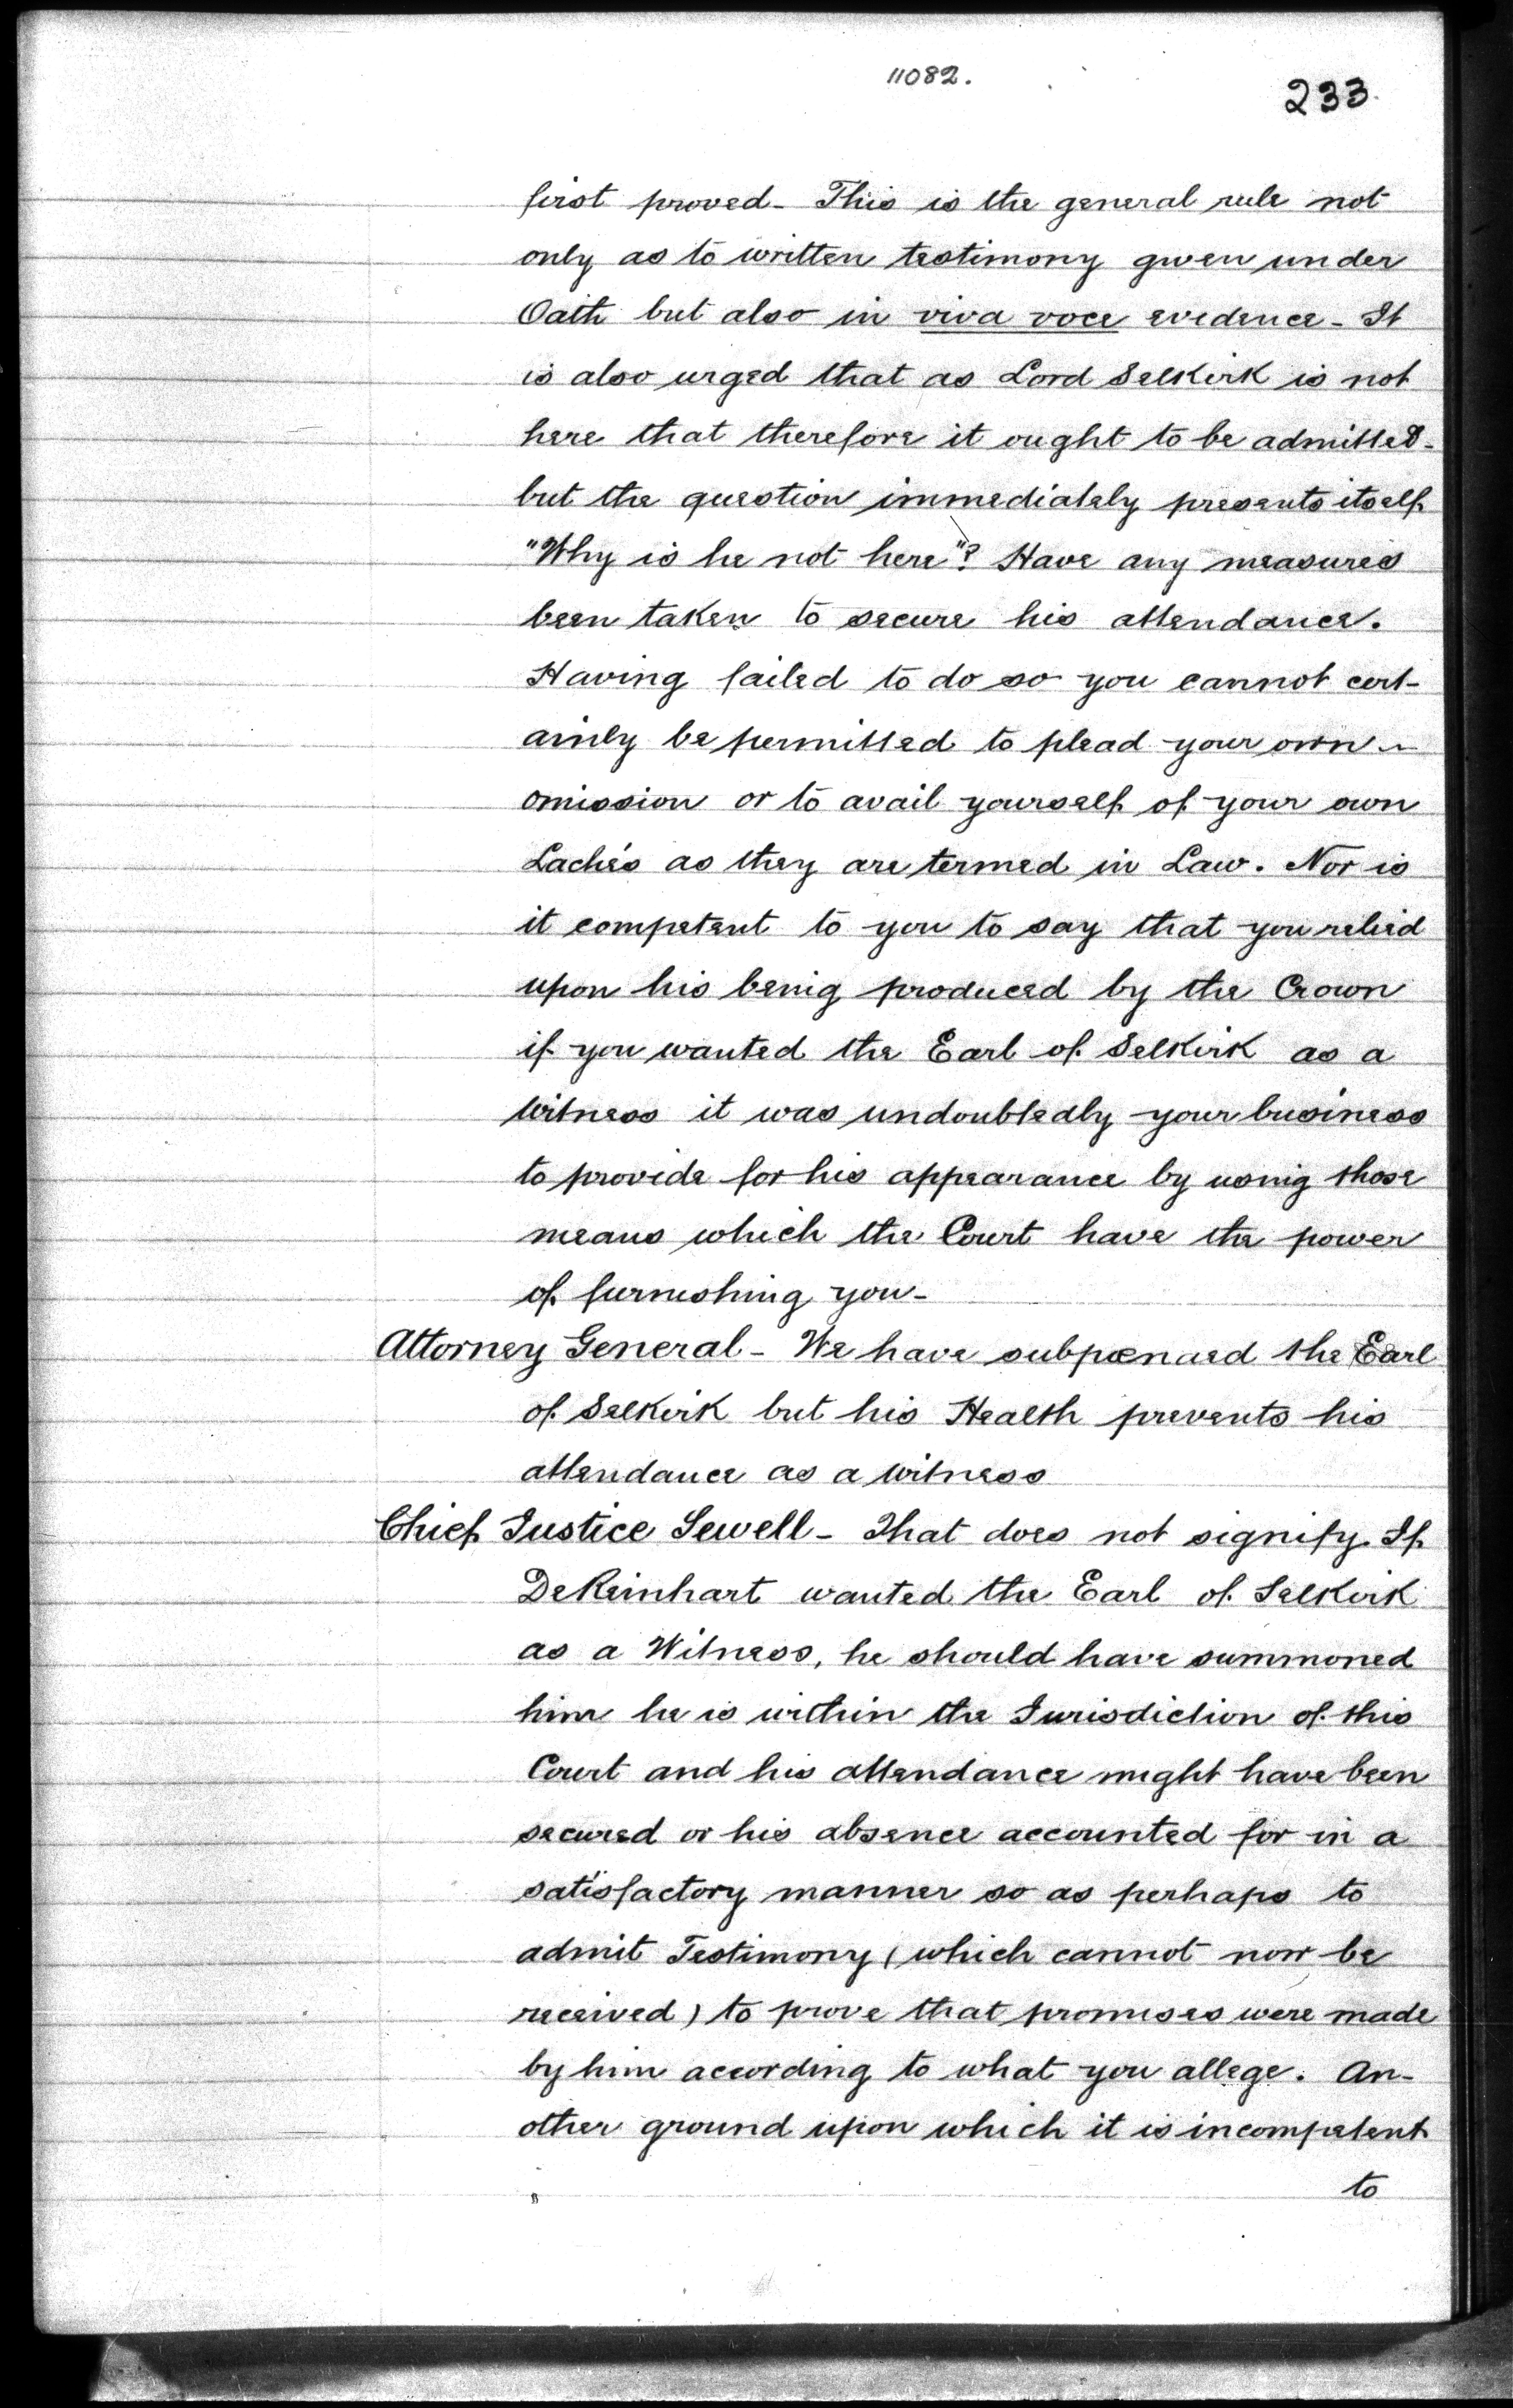 11082.
233.
first proved - This is the general rule not
only as to written testimony given under
Oath but also in viva voce evidence - It
is also urged that as Lord Selkirk is not
here that therefore it ought to be admitted -
but the question immediately presents itself
"Why is he not here"? Have any measures
been taken to secure his attendance.
Having failed to do so you cannot cert-
ainly be permitted to plead your own -
omission or to avail yourself of your own
Lachés as they are termed in Law. Nor is
it competent to you to say that you relied
upon his being produced by the Crown
if you wanted the Earl of Selkirk as a
witness it was undoubtedly your business
to provide for his appearance by using those
means which the Court have the power
of furnishing you -
Attorney General - We have subpœnaed the Earl
of Selkirk but his Health prevents his
attendance as a witness
Chief Justice Sewell - That does not signify. If
DeReinhart wanted the Earl of Selkirk
as a Witness, he should have summoned
him he is within the Jurisdiction of this
Court and his attendance might have been
secured or his absence accounted for in a
satisfactory manner so as perhaps to
admit Testimony (which cannot now be
received) to prove that promises were made
by him according to what you allege. An-
other ground upon which it is incompetent
to